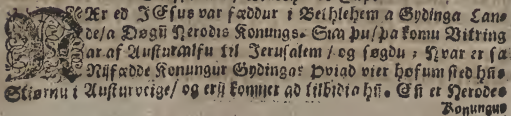 NÆr ed JEsus var fæddur i Bethlehem a Gydinga Lan-
de/a Døgū Herodis Konungs. Sia þu/þa komu Vitring
ar af Austurálfu til Jerusalem/ og søgdu; Hvar er sa
Nijfædde Konungur Gydinga? Þviad vier høfum sied hñs
Stiørnu i Austurveige/ og erū komner ad tilbidia hñ. Eñ er Herodes
Konungur